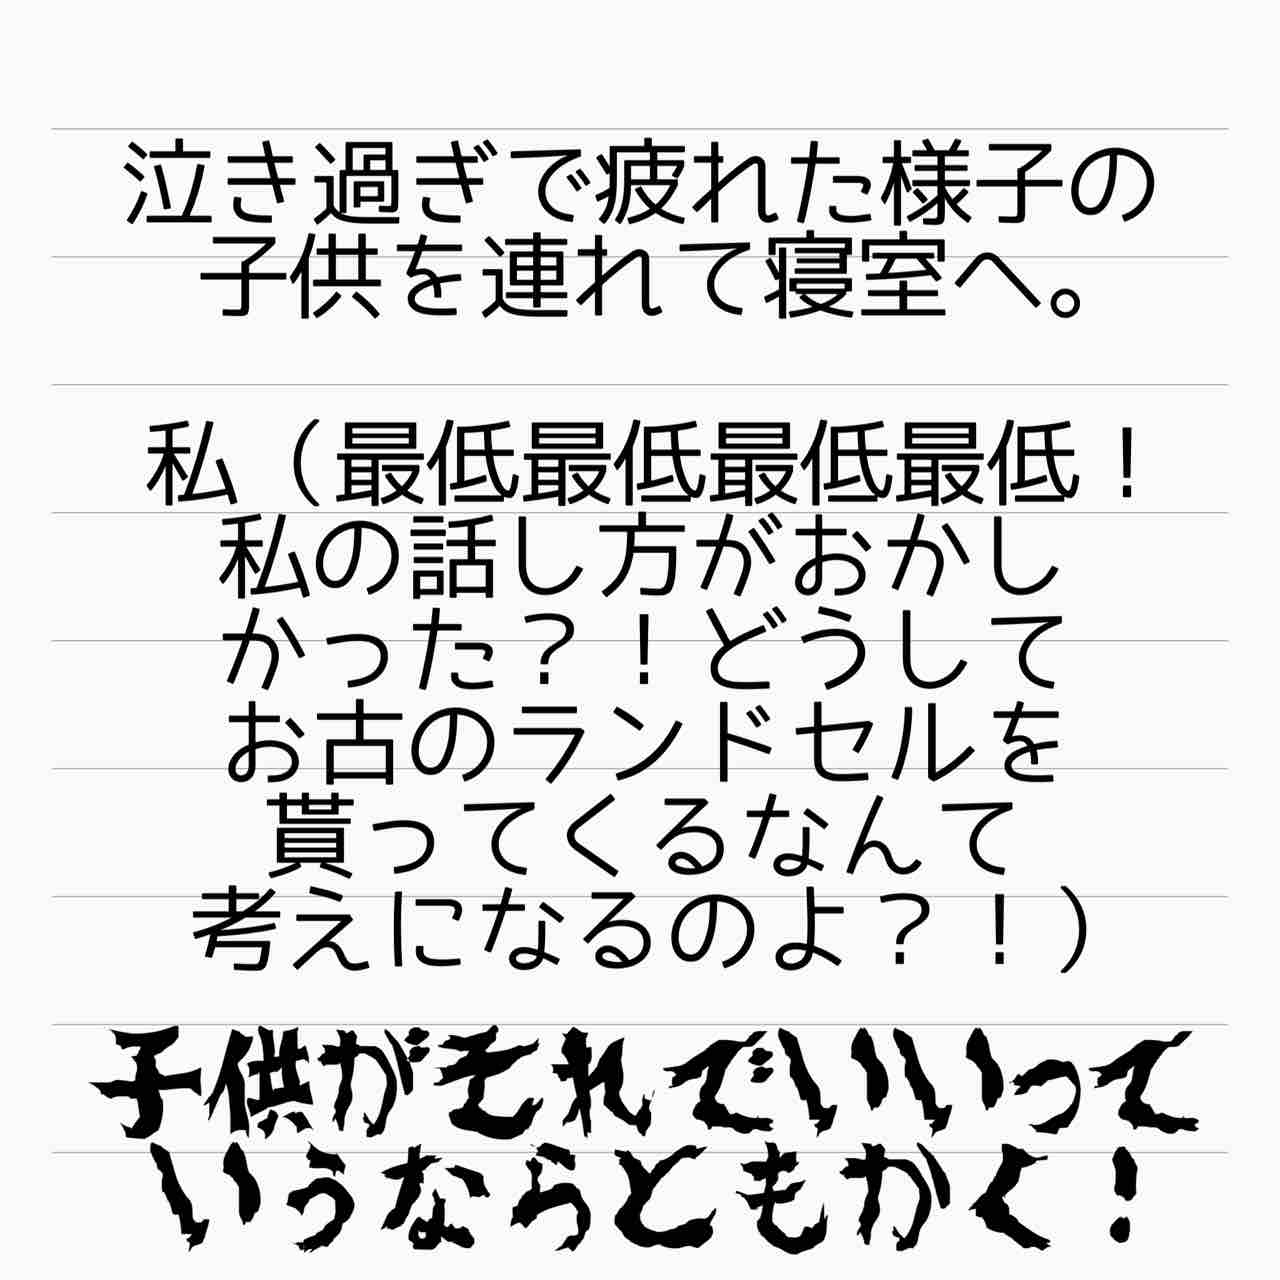 泣き過ぎで疲れた様子の
子供を連れて寝室へ。
私（最低最低最低最低！
私の話し方がおかし
かった？！どうして
お古のランドセルを
貰ってくるなんて
考えになるのよ？！）
子供がそれでいいって
いうならともかく！